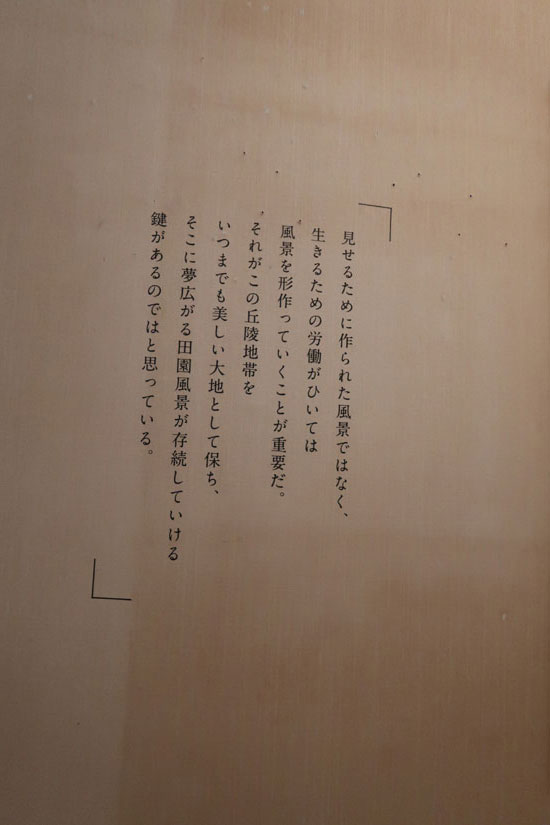 「見せるために作られた風景ではなく、
生きるための労働がひいては
風景を形作っていくことが重要だ。
それがこの丘陵地帯を
いつまでも美しい大地として保ち、
そこに夢広がる田園風景が存続していける
鍵があるのではと思っている。」